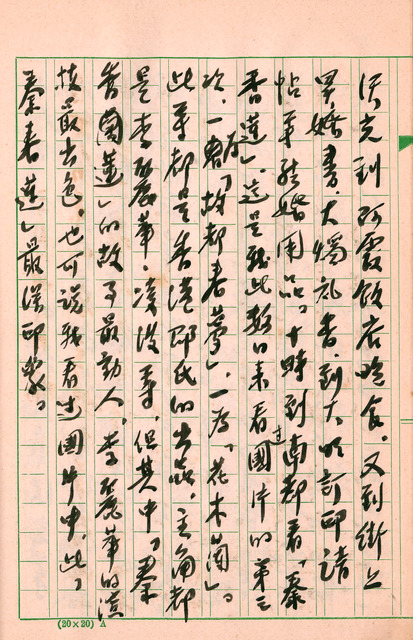 後先到阿霞飯店吃食。又到街上
買婚書、大燭、禮香、到大明訂印請
帖等結婚用品。十時到南都看「秦
香蓮」。這是我此數日來看國片的第三
次,一為「故都春夢」,一為「花木蘭」。
此等都是香港邵氏的出品,主角都
是李麗華、凌波等,但其中「秦
香蓮」的故事最動人,李麗華的演
技最出色,也可說我看過國片中,此「
秦香蓮」最深印象。
(20×20) A